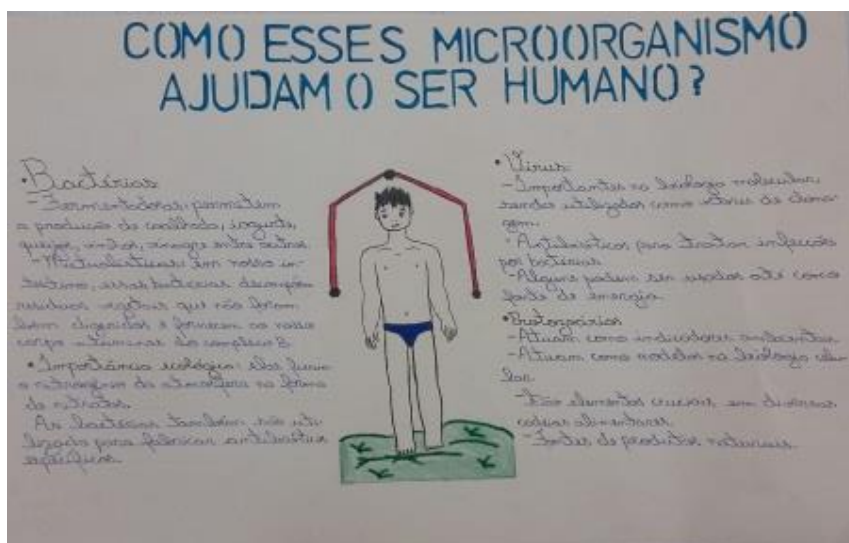 COMO ESSES MICROORGANISMO
AJUDAM O SER HUMANO?
• Bactérias
- Fermentadoras: permitem
a produção de coalhada, iogurte,
queijos, vinhos, vinagre entre outros
- Mutualísticas: em nosso in-
testino, essas bactérias decompõem
resíduos vegetais que não foram
bem digeridos e fornecem ao nosso
corpo vitaminas do complexo B.
• Importância ecológica: elas fixam
o nitrogênio da atmosfera na forma
de nitratos.
As bactérias também são uti-
lizada para fabricar antibióticos
específicos.
• Vírus
- Importantes na biologia molecular,
sendo utilizados como vetores de clona-
gem.
- Antibióticos para tratar infecções
por bactérias
- Alguns podem ser usados até como
fonte de energia.
• Protozoários
- Atuam como indicadores ambientais
- Atuam como modelos na biologia celu-
lar.
- São elementos cruciais em diversas
cadeias alimentares
- Fontes de produtos naturais.